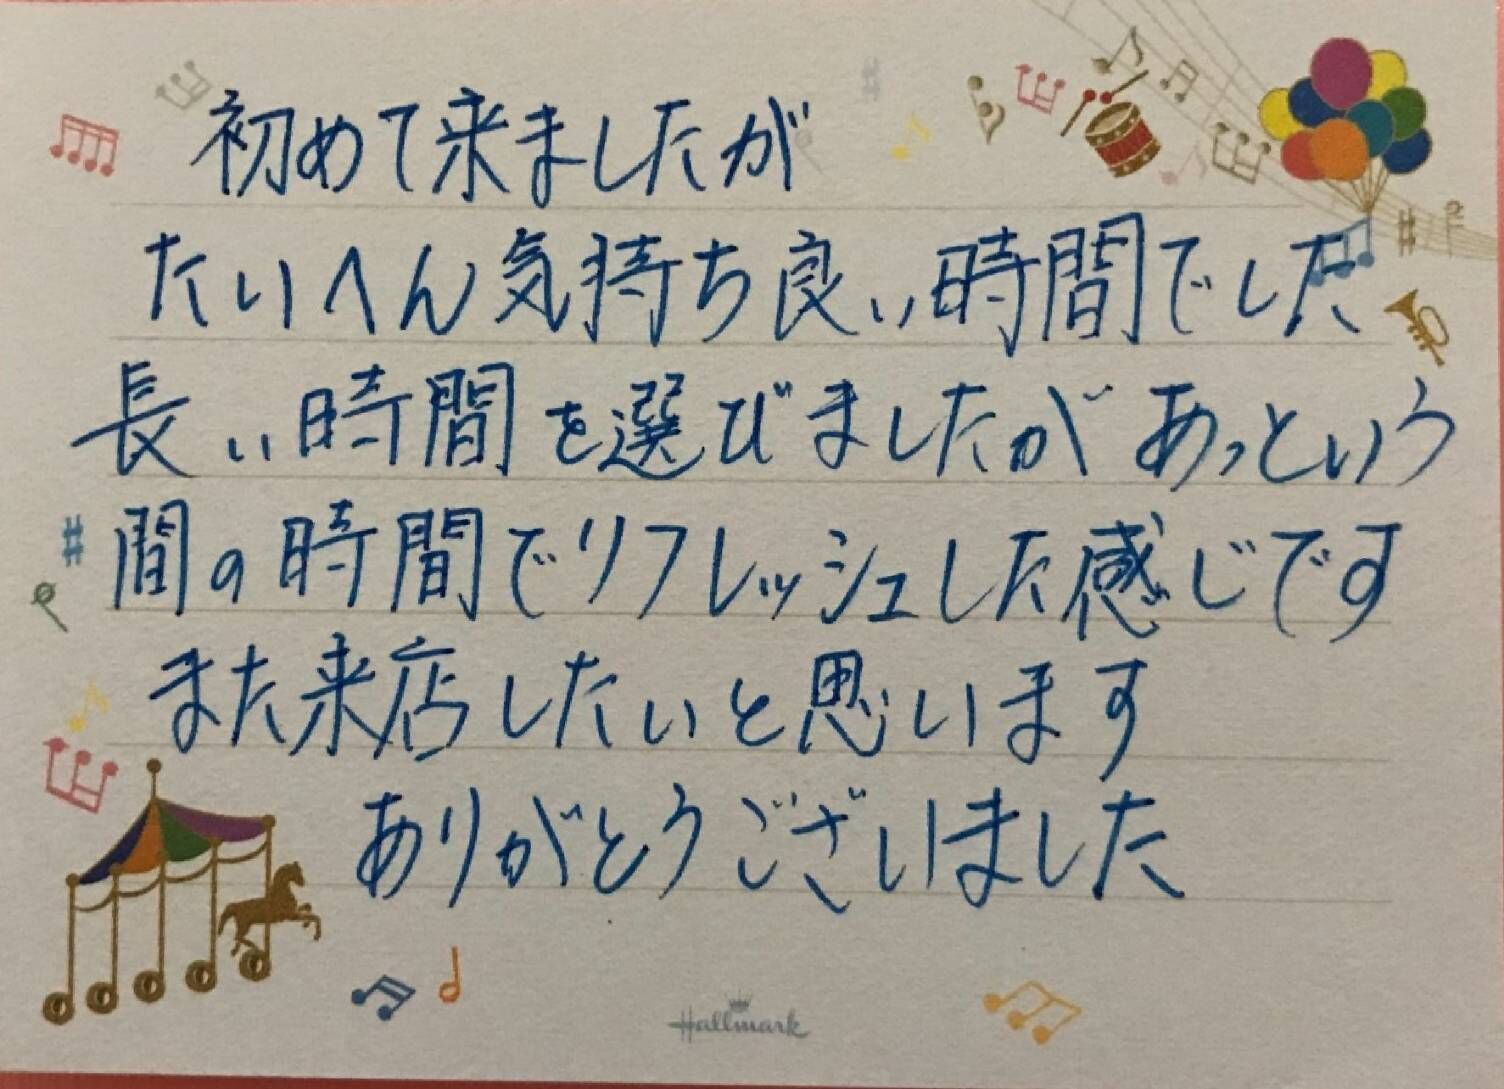 初めて来ましたが
たいへん気持ち良い時間でした
長い時間を選びましたがあっという
間の時間でリフレッシュした感じです
また来店したいと思います
ありがとうございました
Hallmark